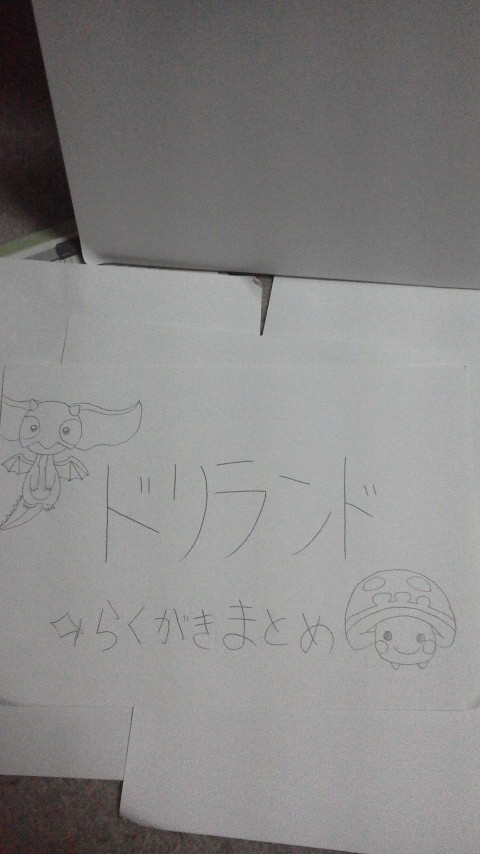 ドリランド
✧らくがきまとめ